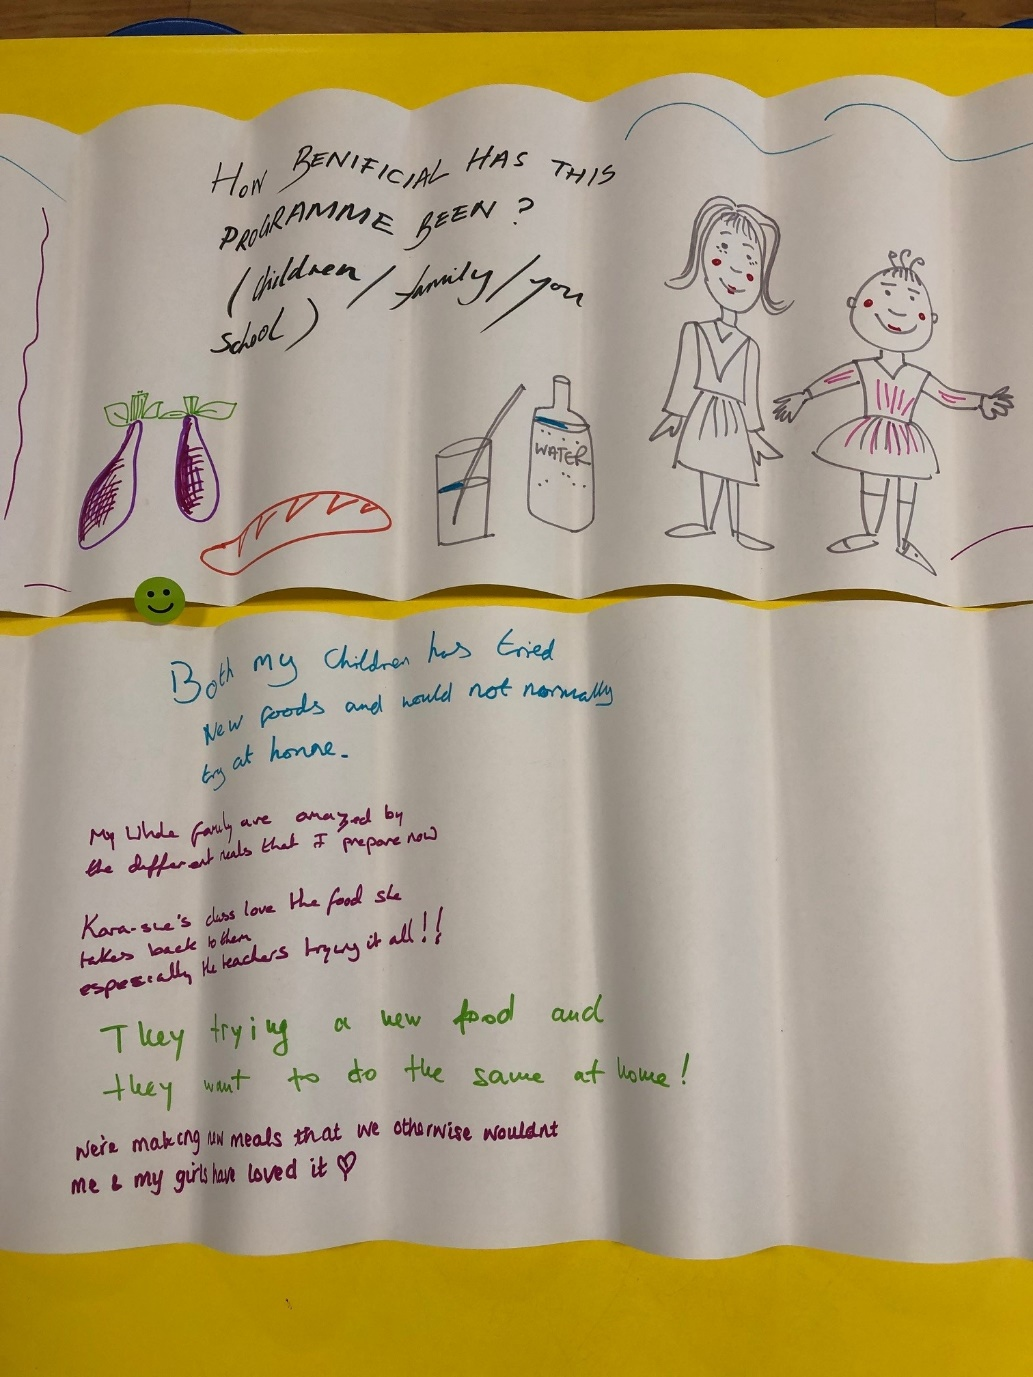 HOW BENIFICIAL HAS THIS
PROGRAMME BEEN ?
(children / family / you
school)
WATER
Both my children has tried
New foods and would not normally
try at home.
My whole family are amazed by
the different meals that I prepare now
Kara-sue's class love the food she
takes back to them
espesially the teachers trying it all!!
They trying a new food and
they want to do the same at home!
We're making new meals that we otherwise wouldnt
me & my girls have loved it ♡